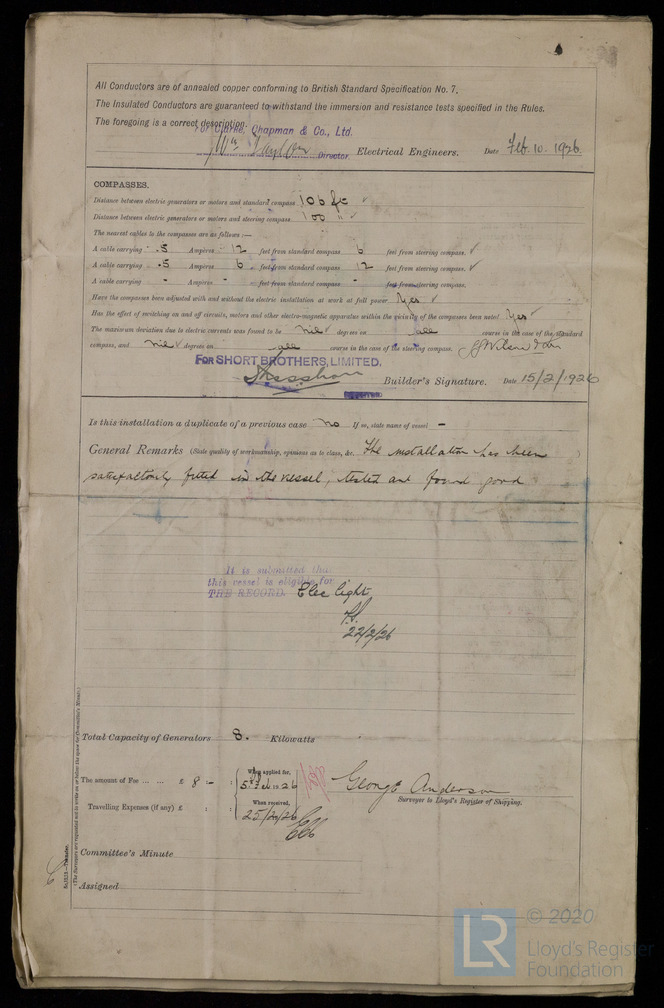 All Conductors are of annealed copper conforming to British Standard Specification No. 7.
The Insulated Conductors are guaranteed to withstand the immersion and resistance tests specified in the Rules.
The foregoing is a correct description.
For Clarke, Chapman & Co., Ltd.
Director. Electrical Engineers. Date Feb. 10. 1926
COMPASSES.
Distance between electric generators or motors and standard compass 106 ft
Distance between electric generators or motors and steering compass 100 "
The nearest cables to the compasses are as follows:—
A cable carrying .5 Amperes 12 feet from standard compass 6 feet from steering compass.
A cable carrying .5 Amperes 6 feet from standard compass 12 feet from steering compass.
A cable carrying - Amperes - feet from standard compass - feet from steering compass.
Have the compasses been adjusted with and without the electric installation at work at full power Yes
Has the effect of switching on and off circuits, motors and other electro-magnetic apparatus within the vicinity of the compasses been noted Yes
The maximum deviation due to electric currents was found to be nil degrees on all course in the case of the standard
compass, and nil degrees on all course in the case of the steering compass.
FOR SHORT BROTHERS, LIMITED.
Builder's Signature. Date 15/2/1926
Is this installation a duplicate of a previous case no If so, state name of vessel -
General Remarks (State quality of workmanship, opinions as to class, &c. The installation has been
satisfactorily fitted in the vessel, tested and found good
It is submitted that
this vessel is eligible for
THE RECORD. Elec light
22/2/26
Total Capacity of Generators 8. Kilowatts
The amount of Fee ... ... £ 8 : - :
When applied for,
26
Travelling Expenses (if any) £ : :
When received,
George Anderson
Surveyor to Lloyd's Register of Shipping.
Committee's Minute
Assigned
(The Surveyors are requested not to write on or below the space for Committee's Minute.)
© 2020
LR
Lloyd's Register
Foundation